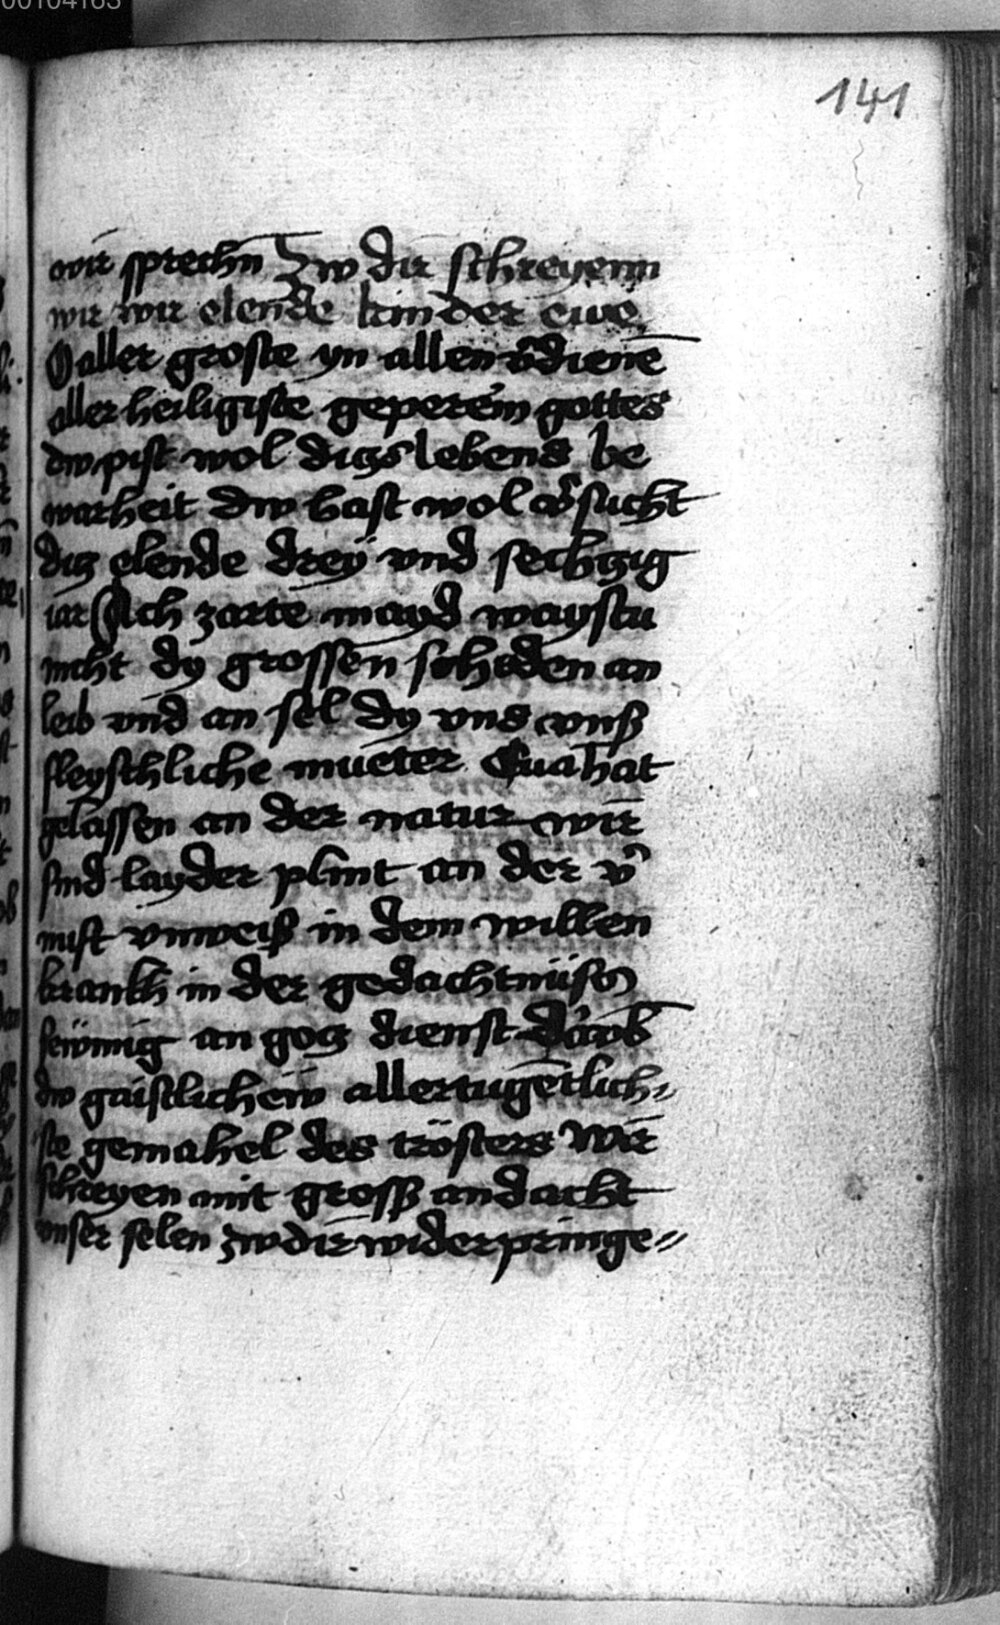 00104163
141
wir sprechn̄ Zw dir schreyenn
wir wir elende kinder ewe
O aller groste yn allen v̄dienē
aller heiligiste gepererin̄ gottes
dw pist wol dicz lebens be
warheit dw hast wol v̄sucht
dicz elende drey vnd sechczig
iar Ach zarte mayd waystu
nicht dy grossen schāden an
leib vnd an sel dy vns vnß
fleyschliche mueter Eua hat
gelassen an der natur wir
sind layder plint an der v̄
nuft vnweiß in dem willen
krankh in der gedachtnüß
sewmig an gocz dienst
dw gaistlichew allertugētlich⸗
ste gemahel des trösters Wir
schreyen mit groß andacht
vnser selen zw dir widerpringe⸗